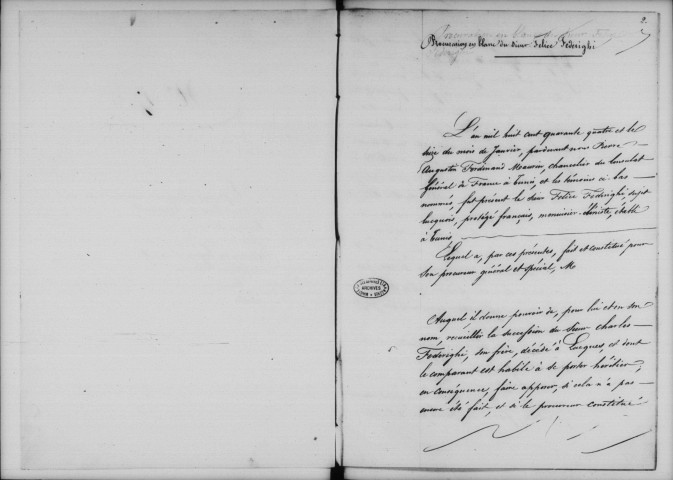 2.
Procuration en blanc du sieur Felice Federighi
L'an mil huit cent quarante quatre et le
seize du mois de Janvier, pardevant nous Pierre
Augustin Ferdinand Mauvin, chancelier du Consulat
Général de France à Tunis, et les témoins ci bas
nommés, fut présent le sieur Felice Federighi, sujet
Lucquois, protégé français, menuisier ébéniste, établi
à Tunis
Lequel a, par ces présentes, fait et constitué pour
son procureur général et spécial, M.
Auquel, il donne pouvoir de, pour lui et en son
nom, recueillir la succession du Sieur Charles
Federighi, son frère, décédé à Lucques, et dont
le comparant est habile à se porter héritier;
en conséquence, faire apposer, si cela n'a pas
encore été fait, et si le procureur constitué
ARCHIVES